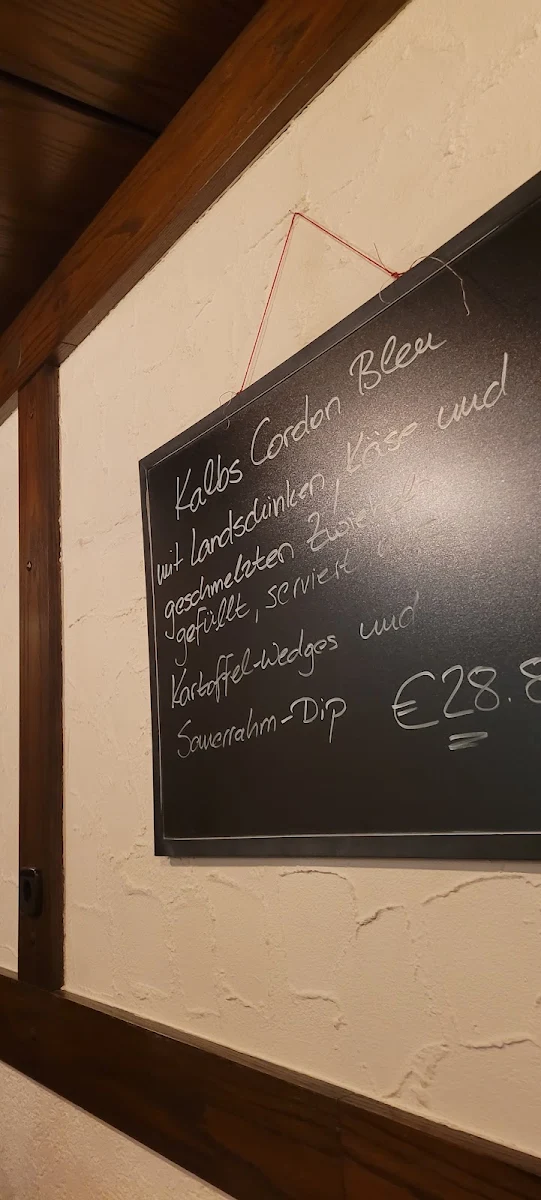 Kalbs Cordon Bleu
mit Landschinken, Käse und
geschmelzten
gefüllt, serviert
Kartoffel-Wedges und
Sauerrahm-Dip €28.8